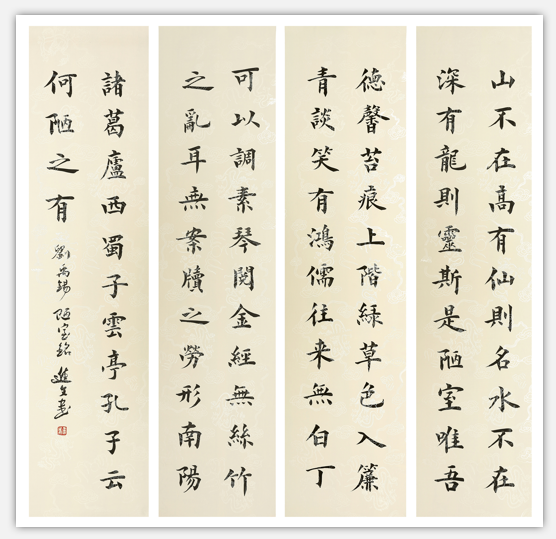 山不在高有仙則名水不在
深有龍則靈斯是陋室唯吾
德馨苔痕上階綠草色入簾
青談笑有鴻儒往来無白丁
可以調素琴閱金經無絲竹
之亂耳無案牘之勞形南陽
諸葛廬西蜀子雲亭孔子云
何陋之有
劉禹錫陋室銘